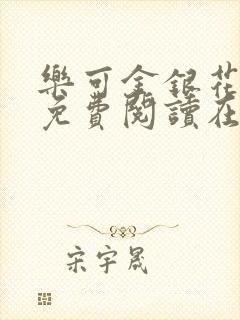 樂可金銀花
免費閱讀在
宋宇晟